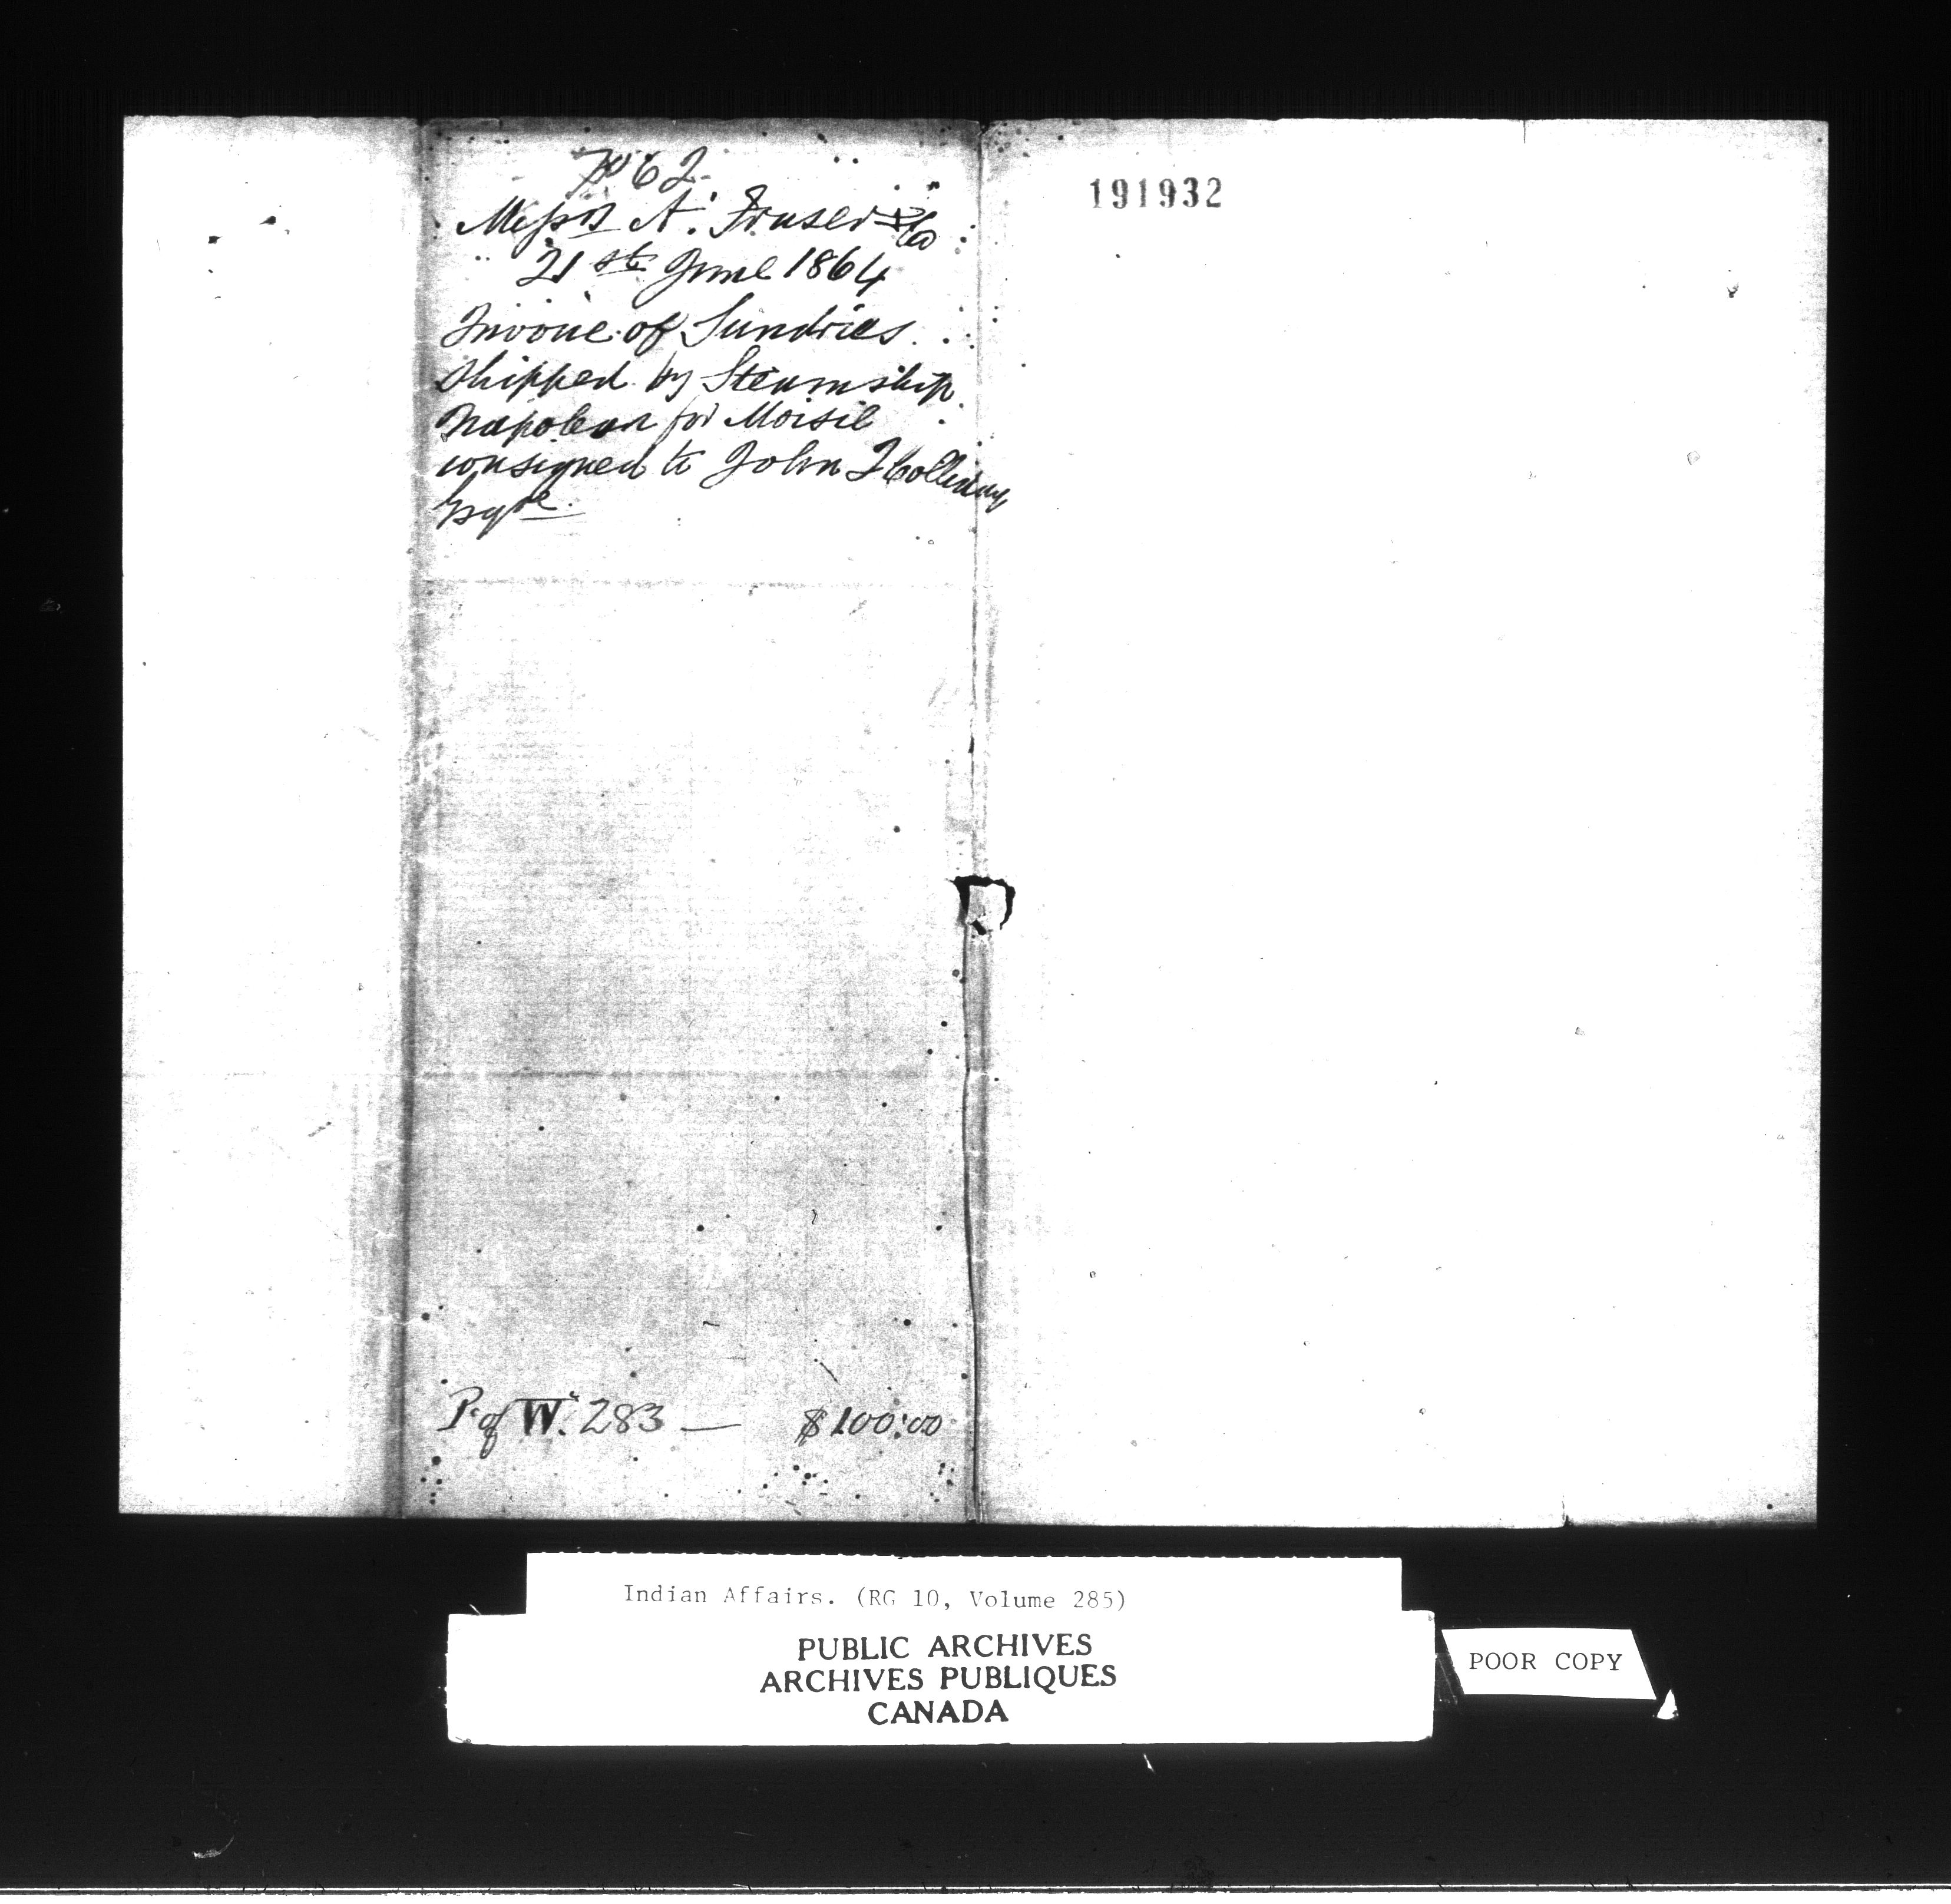 No 62
Messrs A. Fraser & Co
21st June 1864
Invoice of Sundries
Shipped by Steamship
Napoleon for Moisie
consigned to John Holliday
Esqre.
P. of W. 283 — $100.00
191932
Indian Affairs. (RG 10, Volume 285)
PUBLIC ARCHIVES
ARCHIVES PUBLIQUES
CANADA
POOR COPY